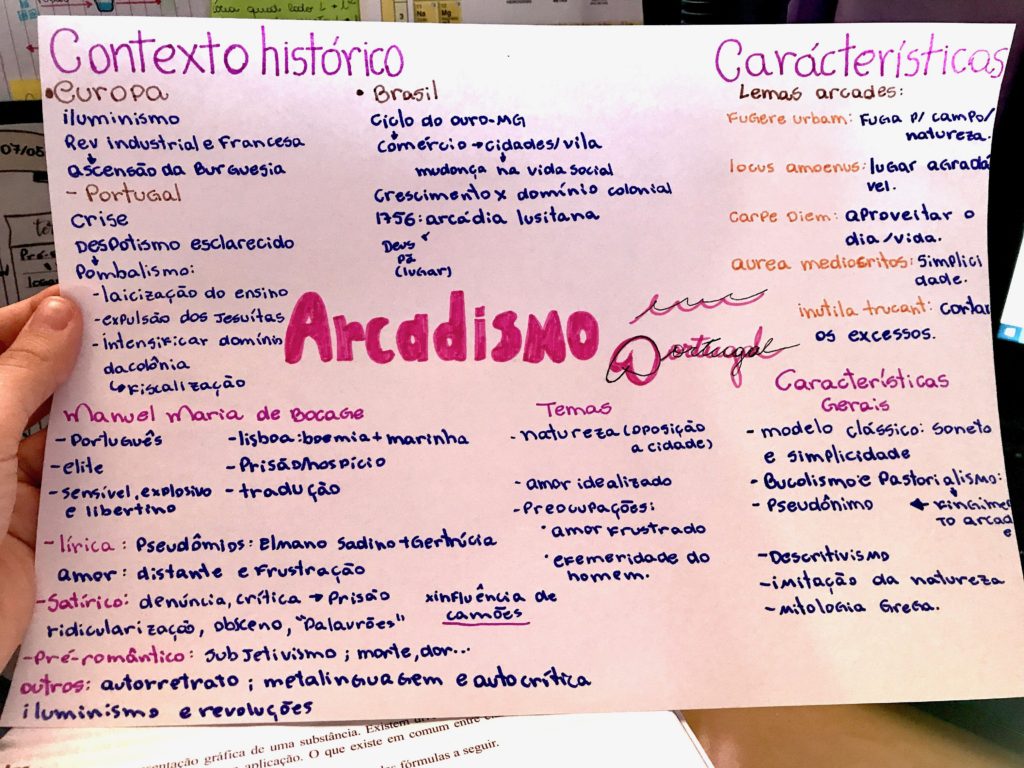 Contexto histórico
• Europa
iluminismo
Rev industrial e Francesa
ascensão da Burguesia
- Portugal
Crise
Despotismo esclarecido
Pombalismo:
- laicização do ensino
- expulsão dos Jesuítas
- intensificar domínio
da colônia
↳ Fiscalização
• Brasil
Ciclo do ouro-MG
Comércio → cidades/vila
mudonça na vida social
Crescimento x domínio colonial
1756: arcádia lusitana
Deus
pã
(lugar)
Carácterísticas
Lemas arcades:
Fugere urbam: Fuga p/ campo/
natureza.
locus amoenus: lugar agradá
vel.
Carpe Diem: aproveitar o
dia/vida.
aurea mediocritos: Simplici
dade.
inutila trucant: cortar
os excessos.
Arcadismo em
Portugal
Manuel Maria de Bocage
- Português
- elite
- sensível, explosivo
e libertino
- lisboa: boemia + marinha
- Prisão/hospício
- tradução
- lírica: Pseudômios: Elmano Sadino + Gertrúcia
amor: distante e Frustração
- Satírico: denúncia, crítica → Prisão
ridicularização, obsceno, "Palavrões"
xinfluência de
camões
- Pré-romântico: Subjetivismo; morte, dor...
outros: autorretrato; metalinguagem e autocrítica
iluminismo e revoluções
Temas
- natureza (oposição
a cidade)
- amor idealizado
- Preocupações:
• amor Frustrado
• eFemeridade do
homem.
Características
Gerais
- modelo clássico: soneto
e simplicidade
- Bucolismo e Pastorialismo:
- Pseudônimo
← Fingimen
to arcad
e
- Descritivismo
- imitação da natureza
- mitologia Grega.
07/05
3
Na
Mg
sentação gráfica de uma substância. Existem
aplicação. O que existe em comum entre
fórmulas a seguir.